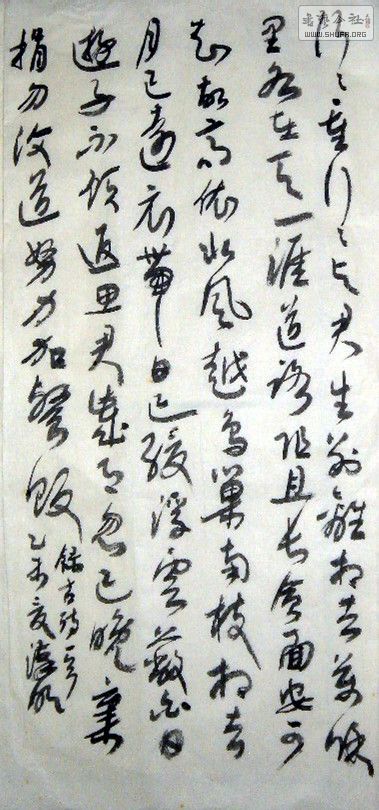 行々重行々与君生别離相去萬餘
里各在天一涯道路阻且長會面安可
知胡馬依北風越鳥巢南枝相去
月已遠衣帶日已緩浮雲蔽白日
遊子不顧返思君歲月忽已晚棄
捐勿復道努力加餐飯
錄古詩一首
乙未夏
書藝公社
WWW.SHUFA.ORG